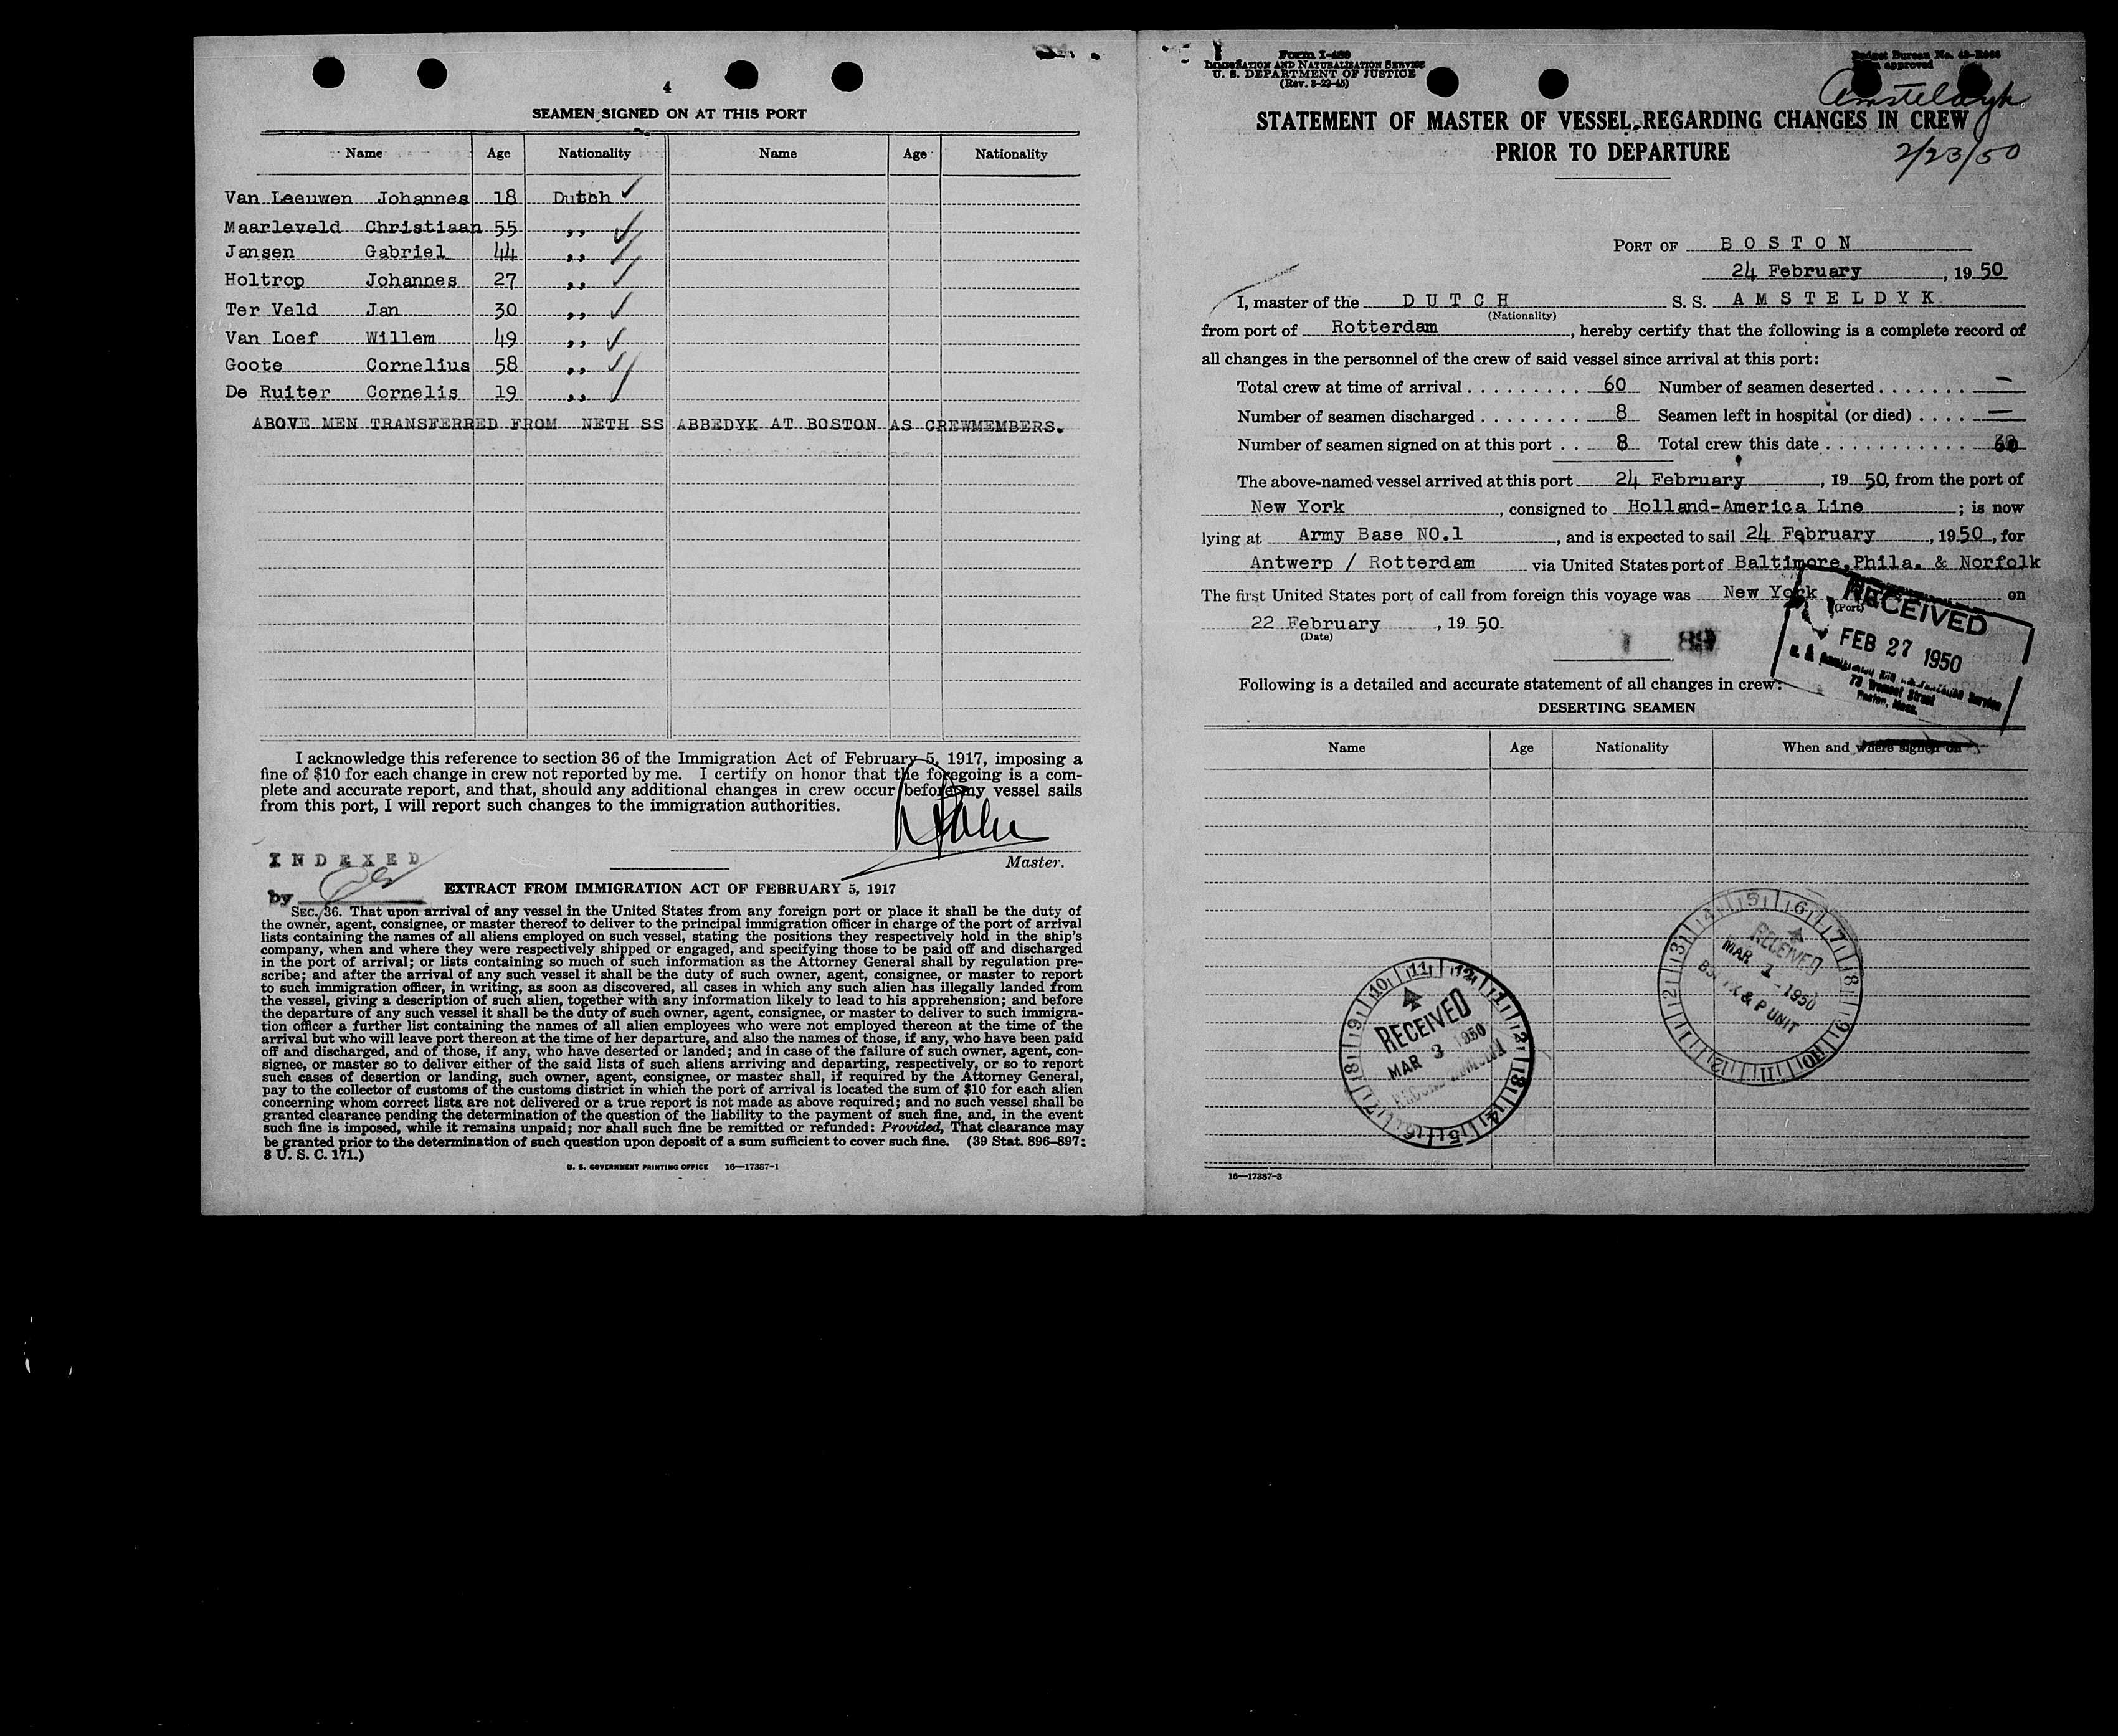 4
SEAMEN SIGNED ON AT THIS PORT
Name Age Nationality Name Age Nationality
Van Leeuwen Johannes 18 Dutch ✓
Maarleveld Christiaan 55 ,, ✓
Jansen Gabriel 44 ,, ✓
Holtrop Johannes 27 ,, ✓
Ter Veld Jan 30 ,, ✓
Van Loef Willem 49 ,, ✓
Goote Cornelius 58 ,, ✓
De Ruiter Cornelis 19 ,, ✓
ABOVE MEN TRANSFERRED FROM NETH SS ABBEDYK AT BOSTON AS CREWMEMBERS.
I acknowledge this reference to section 36 of the Immigration Act of February 5, 1917, imposing a
fine of $10 for each change in crew not reported by me. I certify on honor that the foregoing is a com-
plete and accurate report, and that, should any additional changes in crew occur before my vessel sails
from this port, I will report such changes to the immigration authorities.
Master.
INDEXED
by
EXTRACT FROM IMMIGRATION ACT OF FEBRUARY 5, 1917
SEC. 36. That upon arrival of any vessel in the United States from any foreign port or place it shall be the duty of
the owner, agent, consignee, or master thereof to deliver to the principal immigration officer in charge of the port of arrival
lists containing the names of all aliens employed on such vessel, stating the positions they respectively hold in the ship's
company, when and where they were respectively shipped or engaged, and specifying those to be paid off and discharged
in the port of arrival; or lists containing so much of such information as the Attorney General shall by regulation pre-
scribe; and after the arrival of any such vessel it shall be the duty of such owner, agent, consignee, or master to report
to such immigration officer, in writing, as soon as discovered, all cases in which any such alien has illegally landed from
the vessel, giving a description of such alien, together with any information likely to lead to his apprehension; and before
the departure of any such vessel it shall be the duty of such owner, agent, consignee, or master to deliver to such immigra-
tion officer a further list containing the names of all alien employees who were not employed thereon at the time of the
arrival but who will leave port thereon at the time of her departure, and also the names of those, if any, who have been paid
off and discharged, and of those, if any, who have deserted or landed; and in case of the failure of such owner, agent, con-
signee, or master so to deliver either of the said lists of such aliens arriving and departing, respectively, or so to report
such cases of desertion or landing, such owner, agent, consignee, or master shall, if required by the Attorney General,
pay to the collector of customs of the customs district in which the port of arrival is located the sum of $10 for each alien
concerning whom correct lists are not delivered or a true report is not made as above required; and no such vessel shall be
granted clearance pending the determination of the question of the liability to the payment of such fine, and, in the event
such fine is imposed, while it remains unpaid; nor shall such fine be remitted or refunded: Provided, That clearance may
be granted prior to the determination of such question upon deposit of a sum sufficient to cover such fine. (39 Stat. 896–897;
8 U. S. C. 171.)
U. S. GOVERNMENT PRINTING OFFICE 16—17387-1
Form I-489
IMMIGRATION AND NATURALIZATION SERVICE
U. S. DEPARTMENT OF JUSTICE
(Rev. 3-22-45)
Budget Bureau No.
approved
Amsteldyk
2/23/50
STATEMENT OF MASTER OF VESSEL REGARDING CHANGES IN CREW
PRIOR TO DEPARTURE
PORT OF BOSTON
24 February, 1950
I, master of the DUTCH S. S. AMSTELDYK
(Nationality)
from port of Rotterdam, hereby certify that the following is a complete record of
all changes in the personnel of the crew of said vessel since arrival at this port:
Total crew at time of arrival . . . . . . . . . 60 Number of seamen deserted . . . . . . . —
Number of seamen discharged . . . . . . . . 8 Seamen left in hospital (or died) . . . . —
Number of seamen signed on at this port . . 8 Total crew this date . . . . . . . . . . .
The above-named vessel arrived at this port 24 February, 1950, from the port of
New York, consigned to Holland-America Line; is now
lying at Army Base NO.1, and is expected to sail 24 February, 1950, for
Antwerp / Rotterdam via United States port of Baltimore, Phila. & Norfolk
The first United States port of call from foreign this voyage was New York on
(Port)
22 February, 1950.
(Date)
89
RECEIVED
FEB 27 1950
73 Tremont Street
Boston, Mass.
Following is a detailed and accurate statement of all changes in crew:
DESERTING SEAMEN
Name Age Nationality When and where signed on
RECEIVED
MAR 1 - 1950
& P UNIT
RECEIVED
MAR 3 1950
16—17387-3